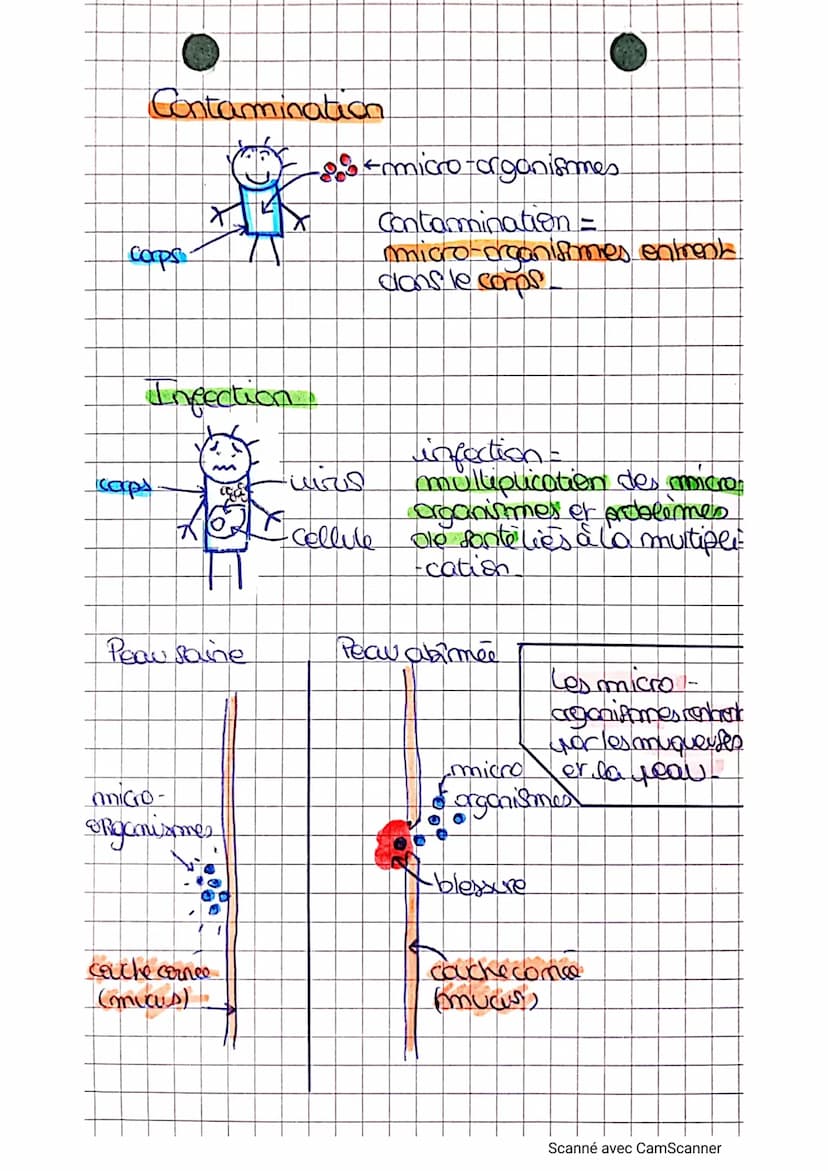 Contamination
micro-organismes
Contamination =
micro-organismes entrent
dans le corps
corps
Infection
infection =
corps
virus
multiplication des micro-
organismes et problèmes
cellule
de santé liés à la multipli-
-cation
Peau saine
Peau abîmée
Les micro-
organismes rentrent
par les muqueuses
et la peau
micro
organismes
micro-
organismes
blessure
couche cornée
(mucus)
couche cornée
(mucus)
Scanné avec CamScanner